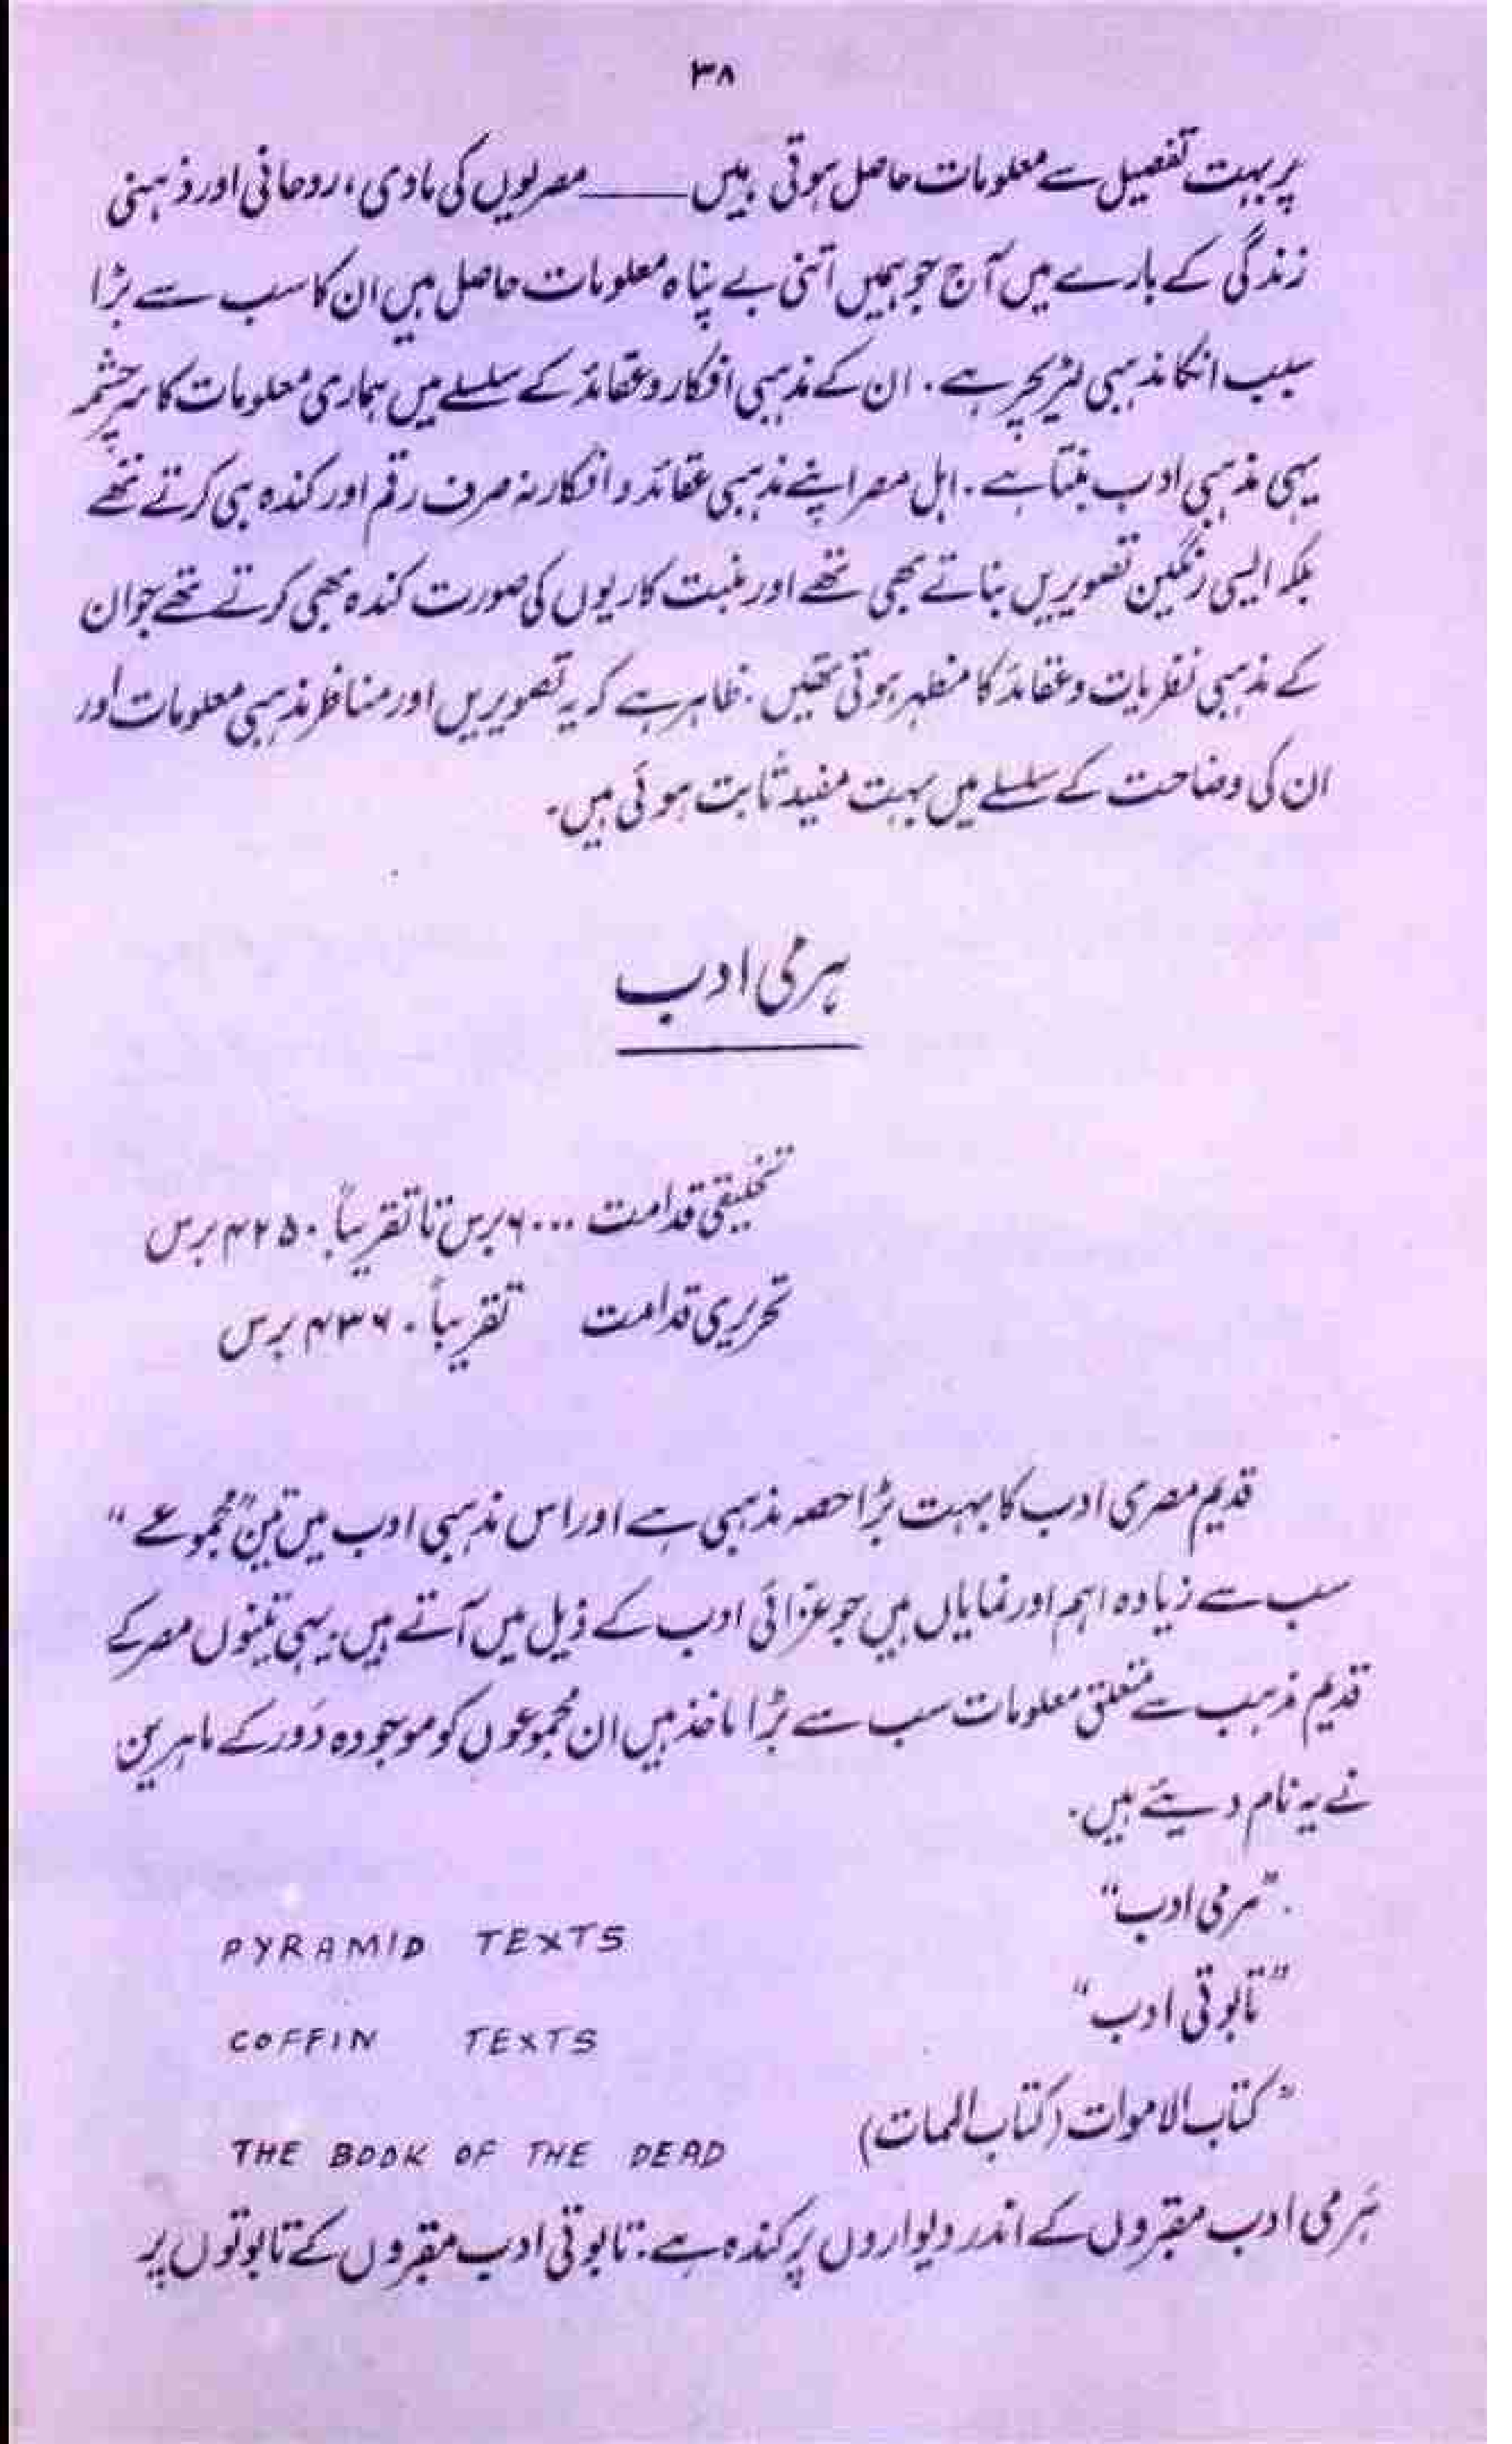 ۳۸
پر بہت تفصیل سے معلومات حاصل ہوتی ہیں ـــــ مصریوں کی مادی، روحانی اور ذہنی
زندگی کے بارے میں آج جو ہمیں اتنی بے پناہ معلومات حاصل ہیں ان کا سب سے بڑا
سبب انکا مذہبی لٹریچر ہے۔ ان کے مذہبی افکار و عقائد کے سلسلے میں ہماری معلومات کا سرچشمہ
یہی مذہبی ادب بنتا ہے۔ اہل مصر اپنے مذہبی عقائد و افکار نہ صرف رقم اور کندہ ہی کرتے تھے
بلکہ ایسی رنگین تصویریں بناتے بھی تھے اور منبت کاریوں کی صورت کندہ بھی کرتے تھے جو ان
کے مذہبی نظریات و عقائد کا مظہر ہوتی تھیں۔ ظاہر ہے کہ یہ تصویریں اور مناظر مذہبی معلومات اور
ان کی وضاحت کے سلسلے میں بہت مفید ثابت ہوئی ہیں۔
ہرمی ادب
تخلیقی قدامت ۶۰۰۰ برس تا تقریباً ۴۲۵۰ برس
تحریری قدامت تقریباً ۴۳۶۰ برس
قدیم مصری ادب کا بہت بڑا حصہ مذہبی ہے اور اس مذہبی ادب میں تین "مجموعے"
سب سے زیادہ اہم اور نمایاں ہیں جو عزائی ادب کے ذیل میں آتے ہیں۔ یہی تینوں مصر کے
قدیم مذہب سے متعلق معلومات سب سے بڑا ماخذ ہیں ان مجموعوں کو موجودہ دَور کے ماہرین
نے یہ نام دیئے ہیں۔
"ہرمی ادب" PYRAMID TEXTS
"تابوتی ادب" COFFIN TEXTS
"کتاب الاموات (کتاب الممات) THE BOOK OF THE DEAD
ہَرمی ادب مقبروں کے اندر دیواروں پر کندہ ہے۔ تابوتی ادب مقبروں کے تابوتوں پر